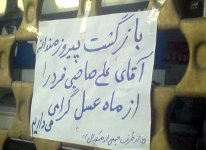 بازگشت پیروزمندانه
آقای علی صاحبی فرد را
از ماه عسل گرامی
می داریم
از طرف